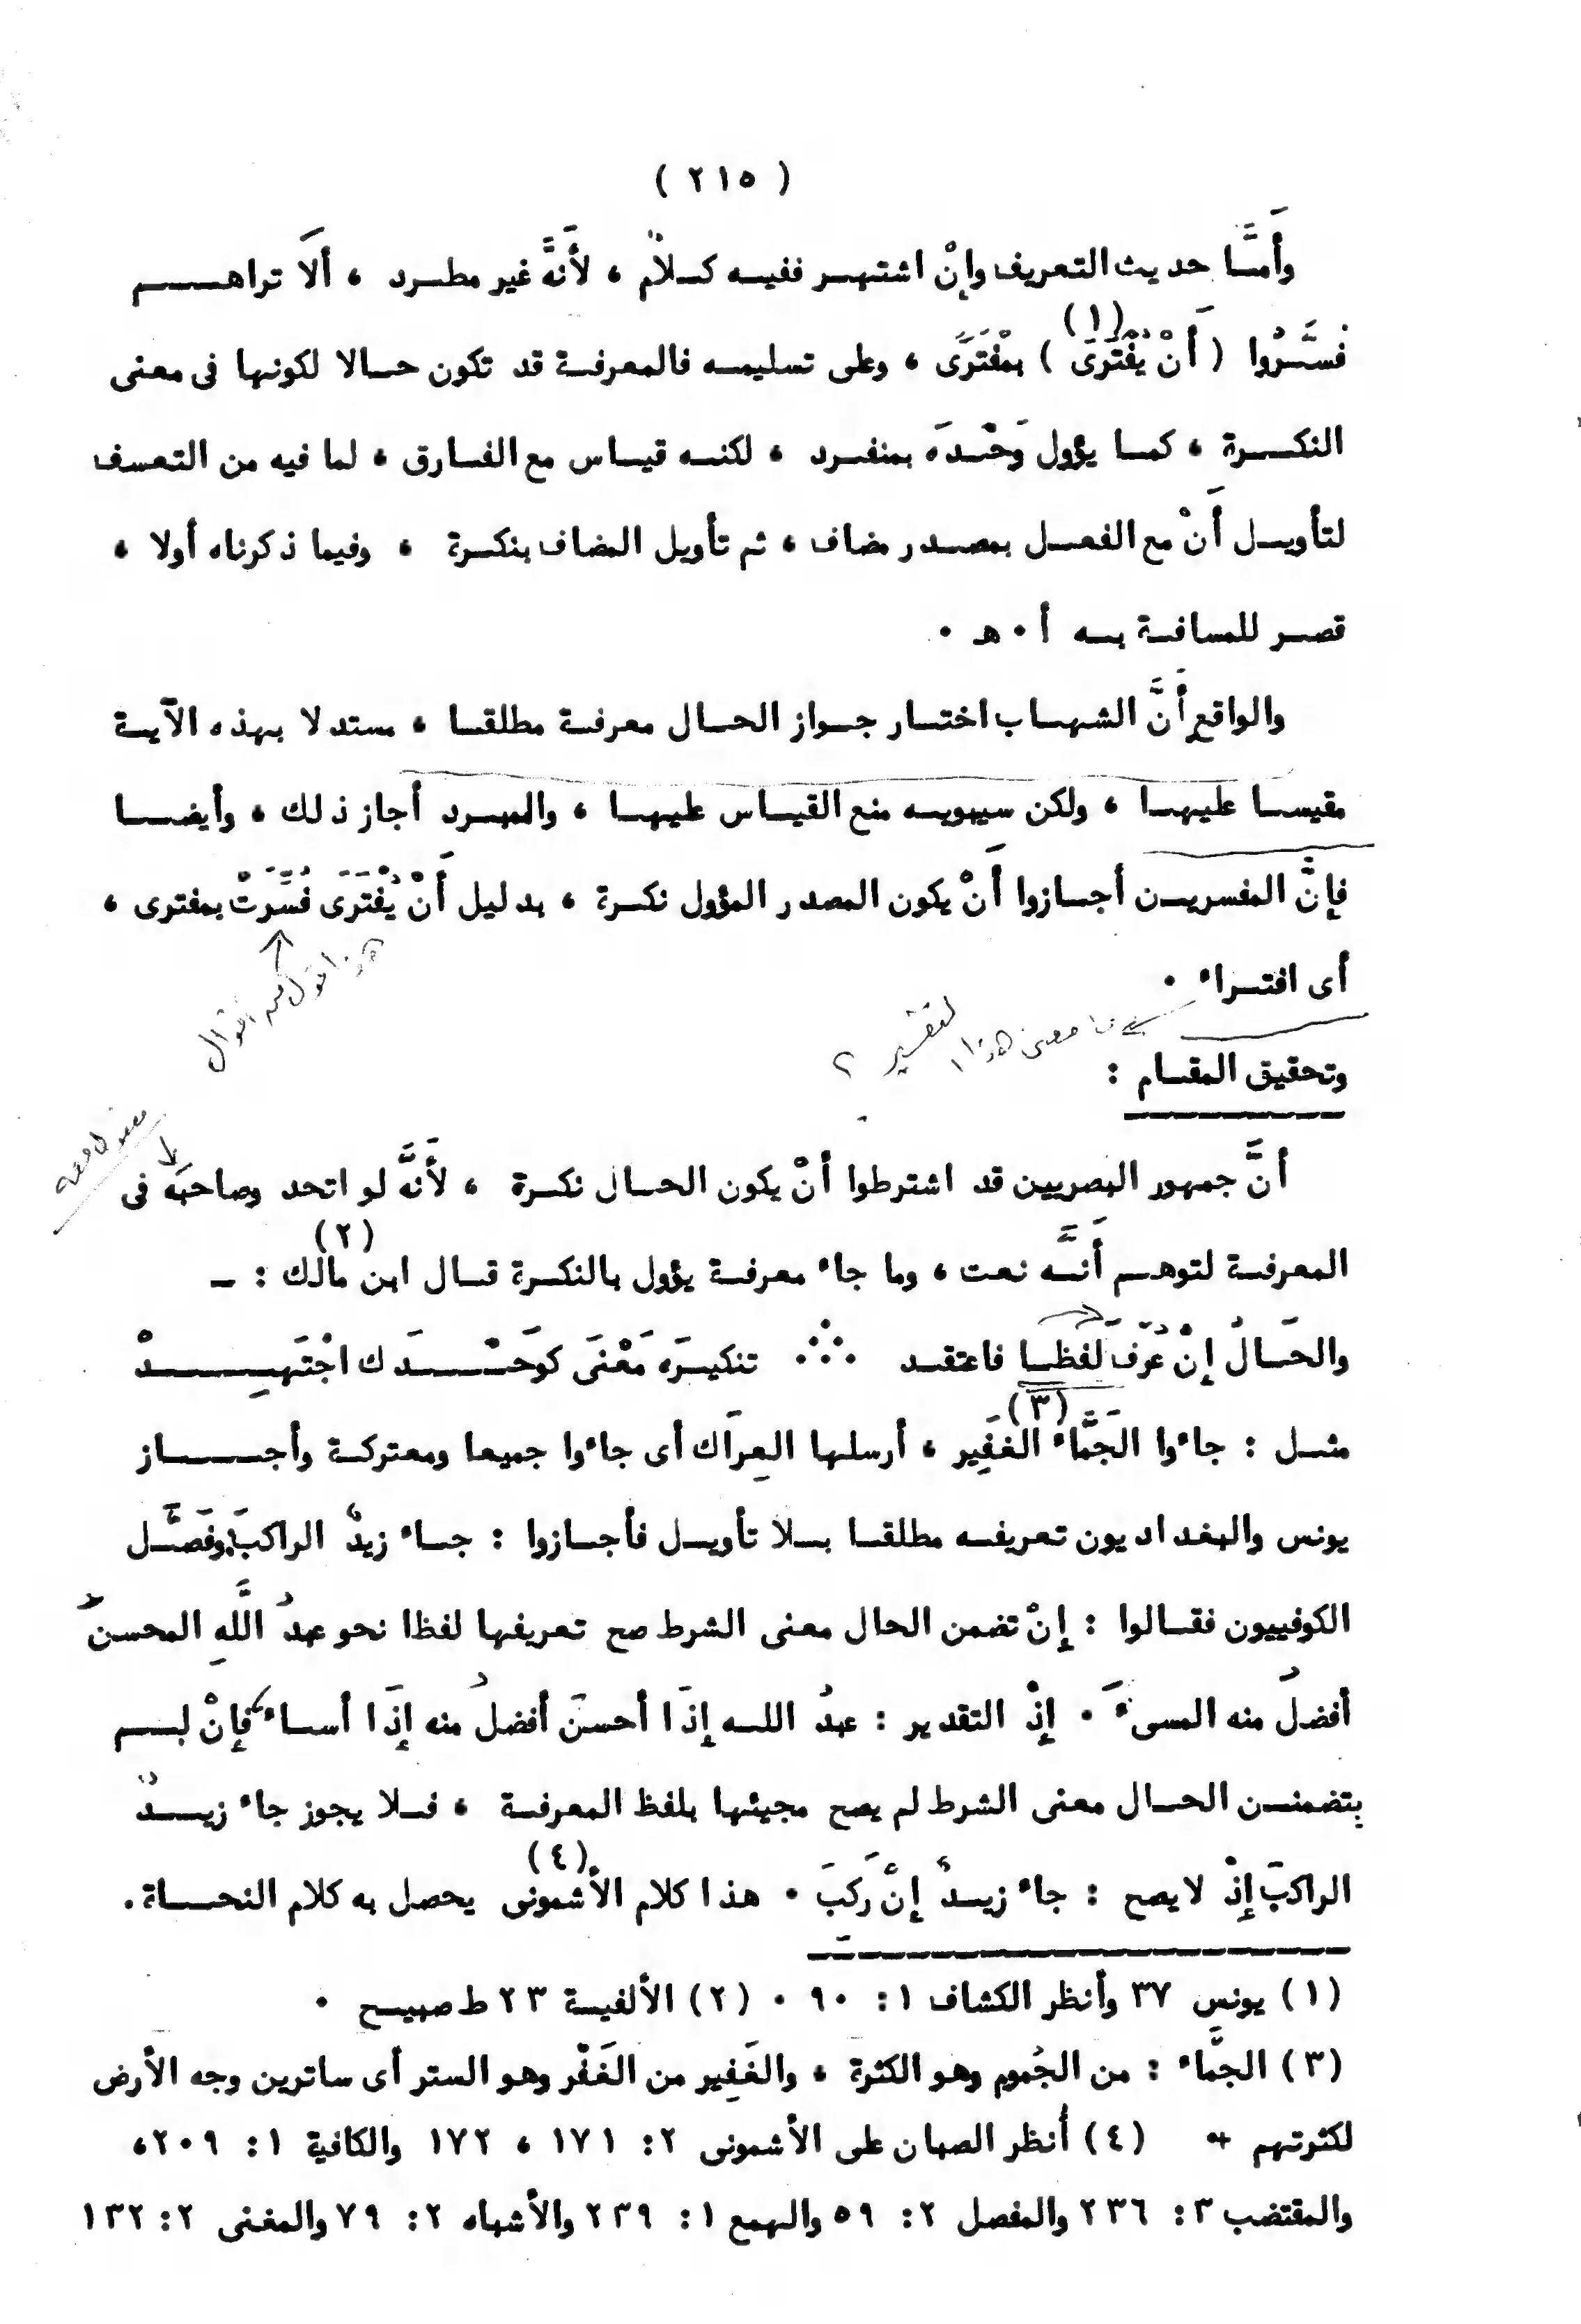 ( ٢١٥ )
وأَمَّا حديث التعريف وإنْ اشتهر ففيه كلامٌ ، لأَنَّه غير مطرد ، ألَا تراهم
فسَّرُوا ( أَنْ يُفْتَرَى ) (١) بمْفْتَرًى ، وعلى تسليمه فالمعرفة قد تكون حالا لكونها فى معنى
النكرة ، كما يؤول وَحْدَه بمنفرد ، لكنه قياس مع الفارق ، لما فيه من التعسف
لتأويل أَنْ مع الفعل بمصدر مضاف ، ثم تأويل المضاف بنكرة ، وفيما ذكرناه أولا ،
قصر للمسافة به أ٠هـ ٠
والواقع أَنَّ الشهاب اختار جواز الحال معرفة مطلقا ، مستدلا بهذه الآية
مقيسا عليها ، ولكن سيبويه منع القياس عليها ، والمبرد أجاز ذلك ، وأيضا
فإنَّ المفسرين أجازوا أَنْ يكون المصدر المؤول نكرة ، بدليل أَنْ يُفْتَرَى فُسِّرَتْ بمفترى ،
هذا قول من اقوال
أى افتراء ٠
ما معنى هذا التفسير ؟
وتحقيق المقام :
أنَّ جمهور البصريين قد اشترطوا أنْ يكون الحال نكرة ، لأَنَّه لو اتحد وصاحبَه فى
المعرفة لتوهم أَنَّه نعت ، وما جاء معرفة يؤول بالنكرة قال ابن مالك (٢) : ـ
والحَالُ إنْ عُرِّفَ لَفظا فاعتقد ∴ تنكيرَه مَعْنَى كوَحْدَك اجْتَهِدْ
مثل : جاءوا الجَمَّاء الغَفِير (٣) ، أرسلها العِرَاك أى جاءوا جميعا ومعتركة وأجاز
يونس والبغداديون تعريفه مطلقا بلا تأويل فأجازوا : جاء زيدٌ الراكبَ، وفَصَّل
الكوفييون فقالوا : إنْ تضمن الحال معنى الشرط صح تعريفها لفظا نحو عبدُ اللَّهِ المحسنَ
أفضلُ منه المسىءَ ٠ إذْ التقدير : عبدُ الله إذَا أحسنَ أفضلُ منه إذَا أساء فإنْ لم
يتضمن الحال معنى الشرط لم يصح مجيئها بلفظ المعرفة ، فلا يجوز جاء زيدٌ
الراكبَ إذْ لايصح : جاء زيدٌ إنْ رَكبَ ٠ هذا كلام الأشمونى (٤) يحصل به كلام النحاة.
(١) يونس ٣٧ وأنظر الكشاف ١: ٩٠ ٠ (٢) الألفية ٢٣ ط صبيح ٠
(٣) الجمَّاء : من الجُموم وهو الكثرة ، والغَفِير من الغَفْر وهو الستر أى ساترين وجه الأرض
لكثرتهم (٤) أنظر الصبان على الأشمونى ٢: ١٧١ ، ١٧٢ والكافية ١: ٢٠٩،
والمقتضب ٣: ٢٣٦ والمفصل ٢: ٥٩ والهمع ١: ٢٣٩ والأشباه ٢: ٧٩ والمغنى ٢: ١٣٢